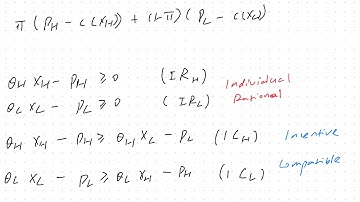 π ( P_H - c(x_H)) + (1-π) ( P_L - c(x_L)
θ_H x_H - P_H ≥ 0 (IR_H) Individual
θ_L x_L - P_L ≥ 0 (IR_L) Rational
θ_H x_H - P_H ≥ θ_H x_L - P_L (IC_H) Incentive
θ_L x_L - P_L ≥ θ_L x_H - P_H (IC_L) Compatible